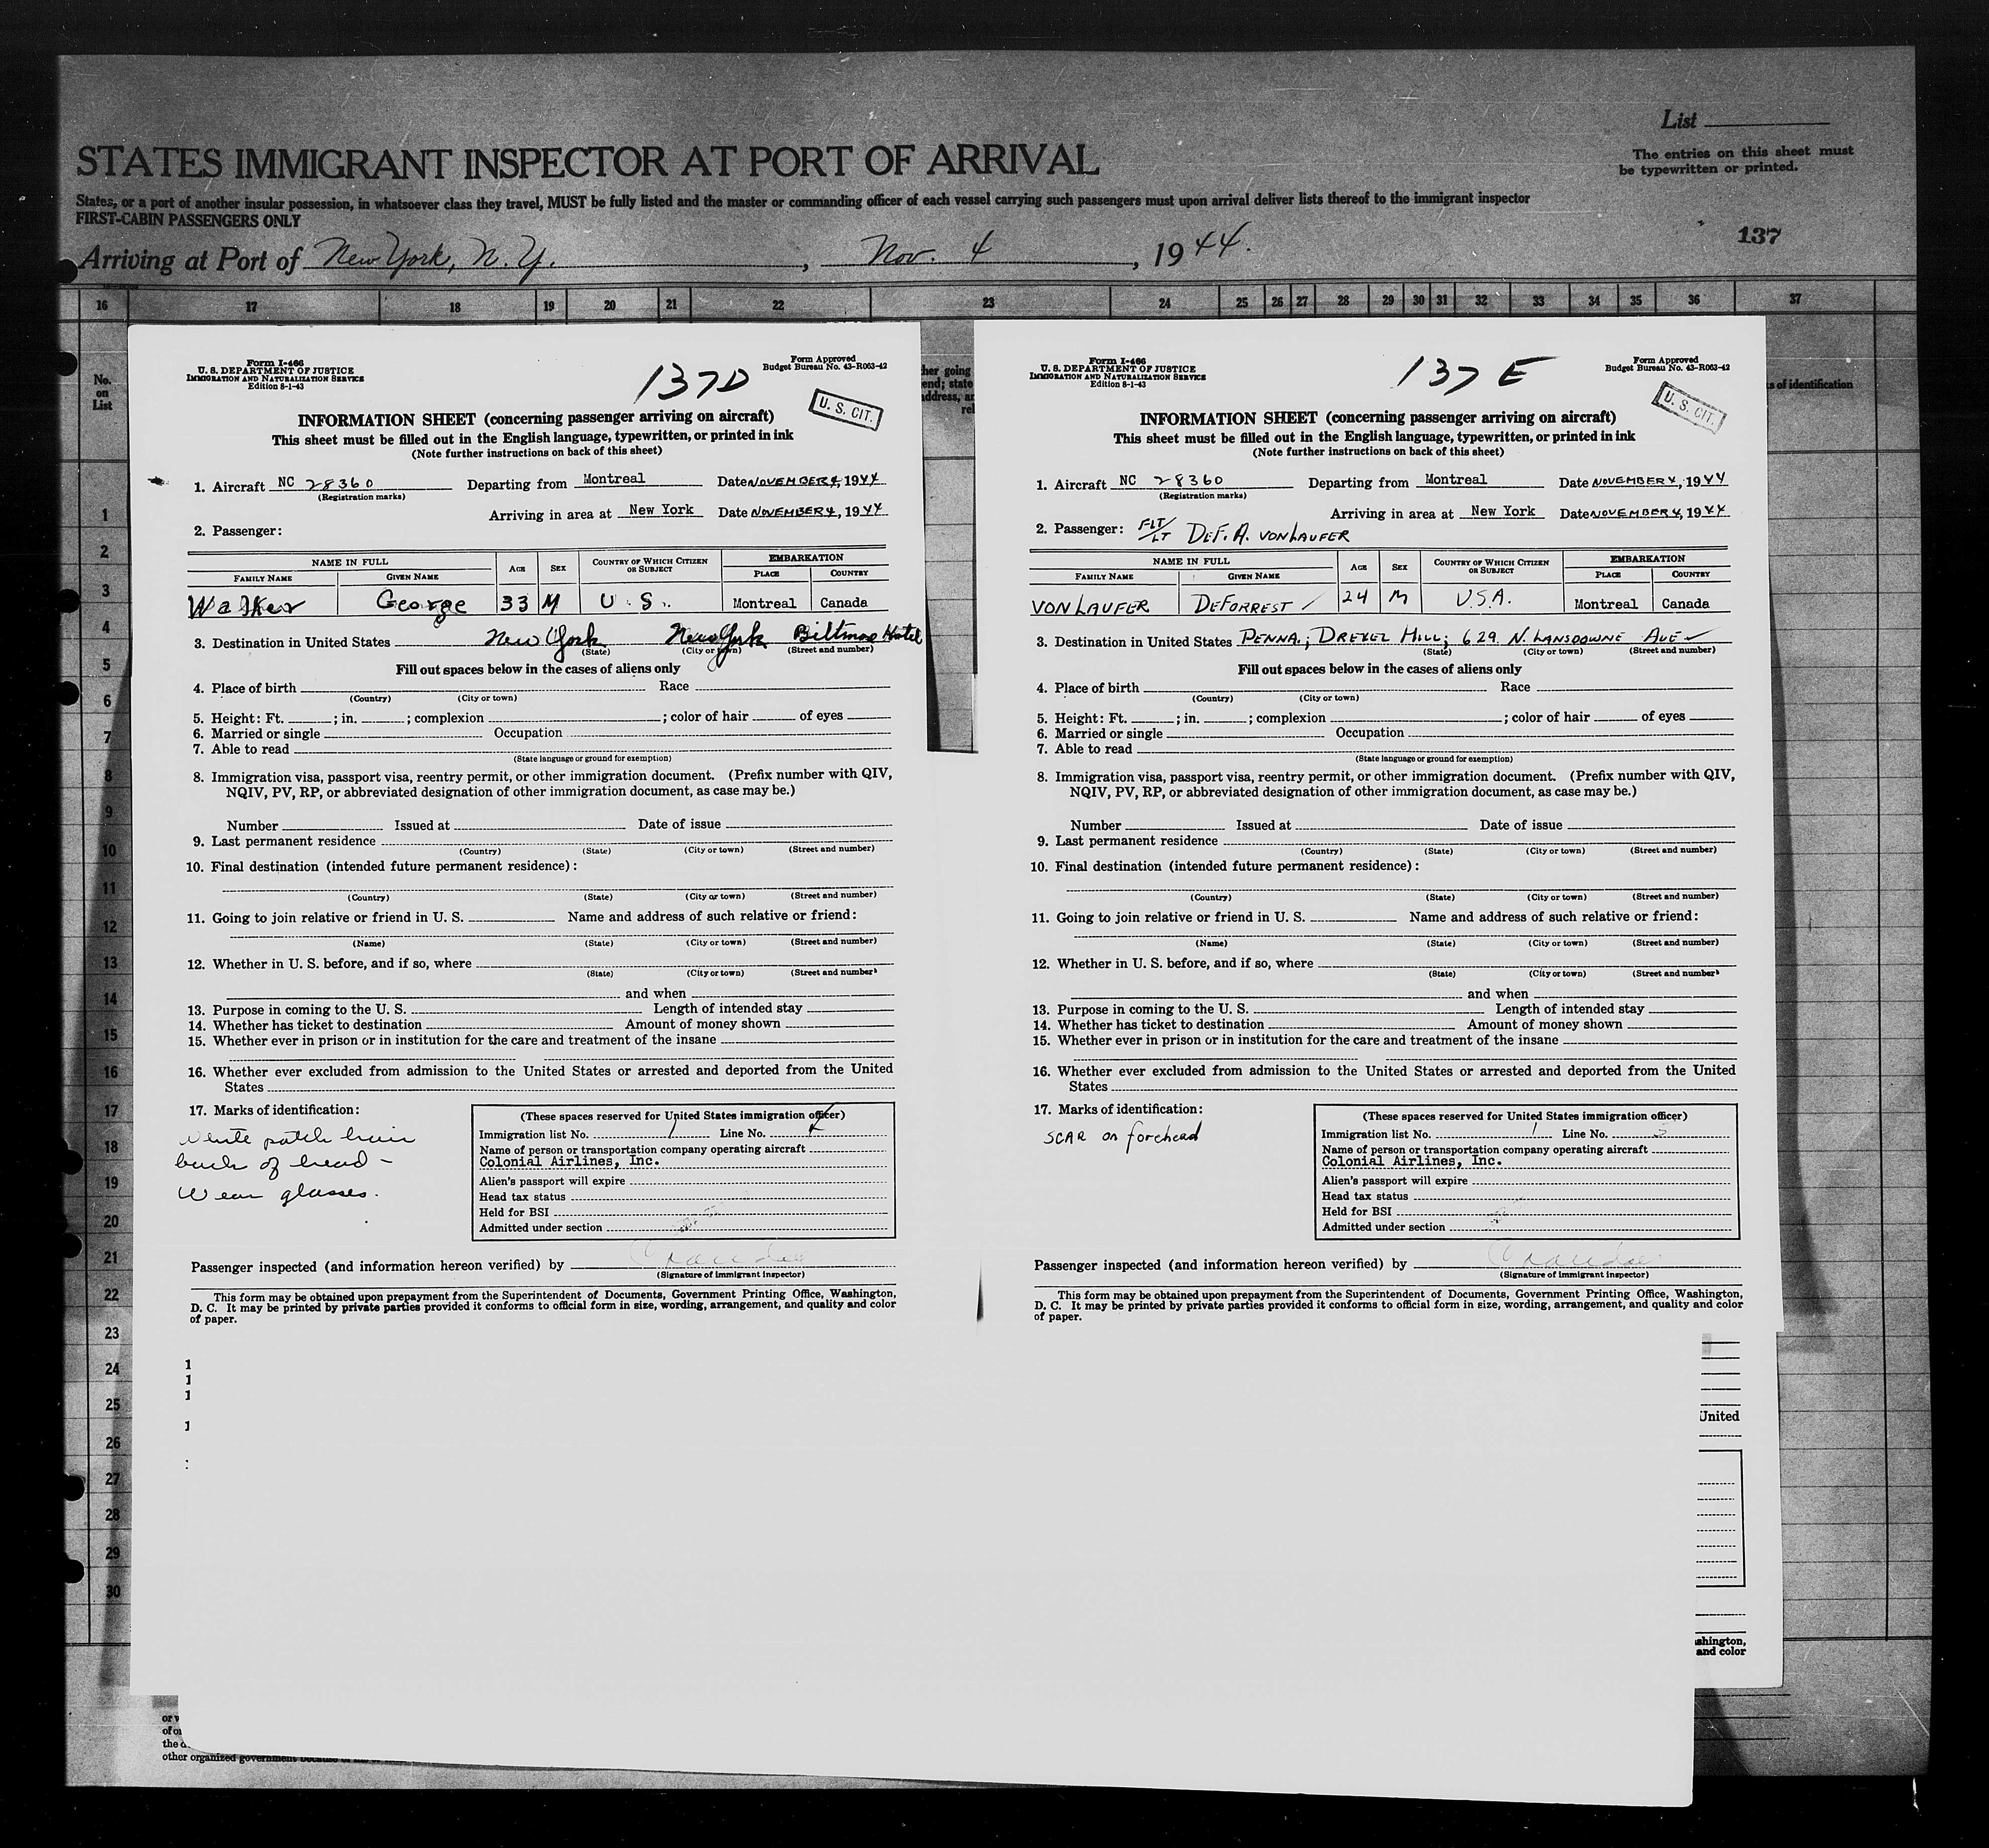 List
STATES IMMIGRANT INSPECTOR AT PORT OF ARRIVAL
The entries on this sheet must
be typewritten or printed.
States, or a port of another insular possession, in whatsoever class they travel, MUST be fully listed and the master or commanding officer of each vessel carrying such passengers must upon arrival deliver lists thereof to the immigrant inspector
FIRST-CABIN PASSENGERS ONLY
137
Arriving at Port of New York, N.Y., Nov. 4, 1944.
16 17 18 19 20 21 22 23 24 25 26 27 28 29 30 31 32 33 34 35 36 37
No.
on
List
1
2
3
4
5
6
7
8
9
10
11
12
13
14
15
16
17
18
19
20
21
22
23
24
25
26
27
28
29
30
Form I-466
U. S. DEPARTMENT OF JUSTICE
IMMIGRATION AND NATURALIZATION SERVICE
Edition 8-1-43
137D
Form Approved
Budget Bureau No. 43-R063-42
U. S. CIT.
INFORMATION SHEET (concerning passenger arriving on aircraft)
This sheet must be filled out in the English language, typewritten, or printed in ink
(Note further instructions on back of this sheet)
1. Aircraft NC 28360 Departing from Montreal Date NOVEMBER 4, 1944
(Registration marks)
Arriving in area at New York Date NOVEMBER 4, 1944
2. Passenger:
NAME IN FULL AGE SEX COUNTRY OF WHICH CITIZEN OR SUBJECT EMBARKATION
FAMILY NAME GIVEN NAME PLACE COUNTRY
Walker George 33 M U.S. Montreal Canada
3. Destination in United States New York New York Biltmore Hotel
(State) (City or town) (Street and number)
Fill out spaces below in the cases of aliens only
4. Place of birth Race
(Country) (City or town)
5. Height: Ft. ; in. ; complexion ; color of hair of eyes
6. Married or single Occupation
7. Able to read
(State language or ground for exemption)
8. Immigration visa, passport visa, reentry permit, or other immigration document. (Prefix number with QIV,
NQIV, PV, RP, or abbreviated designation of other immigration document, as case may be.)
Number Issued at Date of issue
9. Last permanent residence
(Country) (State) (City or town) (Street and number)
10. Final destination (intended future permanent residence):
(Country) (State) (City or town) (Street and number)
11. Going to join relative or friend in U. S. Name and address of such relative or friend:
(Name) (State) (City or town) (Street and number)
12. Whether in U. S. before, and if so, where
(State) (City or town) (Street and number)
and when
13. Purpose in coming to the U. S. Length of intended stay
14. Whether has ticket to destination Amount of money shown
15. Whether ever in prison or in institution for the care and treatment of the insane
16. Whether ever excluded from admission to the United States or arrested and deported from the United
States
17. Marks of identification:
patch hair
back of head -
Wear glasses.
(These spaces reserved for United States immigration officer)
Immigration list No. 1 Line No. 4
Name of person or transportation company operating aircraft
Colonial Airlines, Inc.
Alien's passport will expire
Head tax status
Held for BSI
Admitted under section
Passenger inspected (and information hereon verified) by
(Signature of immigrant inspector)
This form may be obtained upon prepayment from the Superintendent of Documents, Government Printing Office, Washington,
D. C. It may be printed by private parties provided it conforms to official form in size, wording, arrangement, and quality and color
of paper.
Form I-466
U. S. DEPARTMENT OF JUSTICE
IMMIGRATION AND NATURALIZATION SERVICE
Edition 8-1-43
137 E
Form Approved
Budget Bureau No. 43-R063-42
U. S. CIT.
s of identification
INFORMATION SHEET (concerning passenger arriving on aircraft)
This sheet must be filled out in the English language, typewritten, or printed in ink
(Note further instructions on back of this sheet)
1. Aircraft NC 28360 Departing from Montreal Date NOVEMBER 4, 1944
(Registration marks)
Arriving in area at New York Date NOVEMBER 4, 1944
2. Passenger: FLT/LT DEF. A. VONLAUFER
NAME IN FULL AGE SEX COUNTRY OF WHICH CITIZEN OR SUBJECT EMBARKATION
FAMILY NAME GIVEN NAME PLACE COUNTRY
VONLAUFER DEFORREST 24 M U.S.A. Montreal Canada
3. Destination in United States PENNA.; DREXEL HILL; 629 N. LANSDOWNE AVE
(State) (City or town) (Street and number)
Fill out spaces below in the cases of aliens only
4. Place of birth Race
(Country) (City or town)
5. Height: Ft. ; in. ; complexion ; color of hair of eyes
6. Married or single Occupation
7. Able to read
(State language or ground for exemption)
8. Immigration visa, passport visa, reentry permit, or other immigration document. (Prefix number with QIV,
NQIV, PV, RP, or abbreviated designation of other immigration document, as case may be.)
Number Issued at Date of issue
9. Last permanent residence
(Country) (State) (City or town) (Street and number)
10. Final destination (intended future permanent residence):
(Country) (State) (City or town) (Street and number)
11. Going to join relative or friend in U. S. Name and address of such relative or friend:
(Name) (State) (City or town) (Street and number)
12. Whether in U. S. before, and if so, where
(State) (City or town) (Street and number)
and when
13. Purpose in coming to the U. S. Length of intended stay
14. Whether has ticket to destination Amount of money shown
15. Whether ever in prison or in institution for the care and treatment of the insane
16. Whether ever excluded from admission to the United States or arrested and deported from the United
States
17. Marks of identification:
SCAR on forehead
(These spaces reserved for United States immigration officer)
Immigration list No. 1 Line No. 5
Name of person or transportation company operating aircraft
Colonial Airlines, Inc.
Alien's passport will expire
Head tax status
Held for BSI
Admitted under section
Passenger inspected (and information hereon verified) by
(Signature of immigrant inspector)
This form may be obtained upon prepayment from the Superintendent of Documents, Government Printing Office, Washington,
D. C. It may be printed by private parties provided it conforms to official form in size, wording, arrangement, and quality and color
of paper.
United
ashington,
and color
other organized government because of